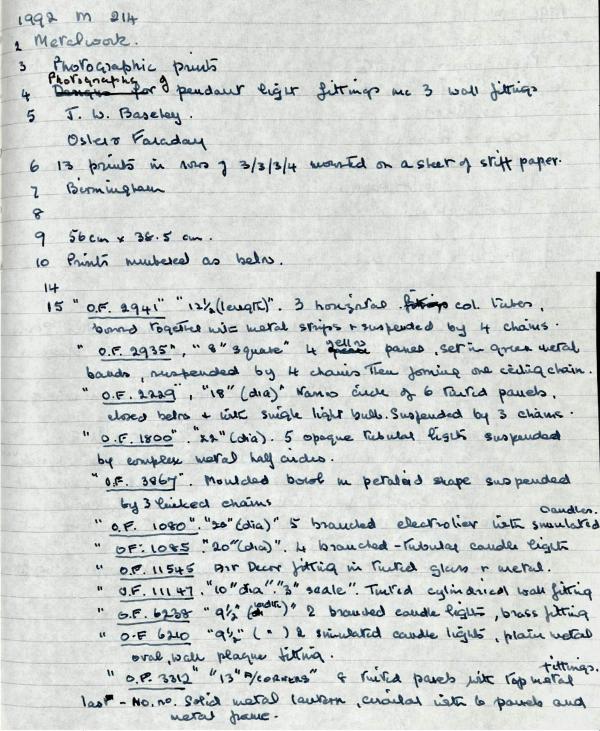 1992 M 214
2 Metalwork.
3 Photographic prints
Photographs of
4 Designs for pendant light fittings inc 3 wall fittings
5 J. W. Baseley.
Osler & Faraday
6 13 prints in rows of 3/3/3/4 mounted on a sheet of stiff paper.
7 Birmingham
8
9 56cm x 38.5 cm.
10 Prints numbered as below.
14
15 "O.F. 2941" "12½ (length)". 3 horizontal col. tubes,
bound together with metal strips & suspended by 4 chains.
"O.F. 2935", "8" square" 4 yellow panes, set in green metal
bands, suspended by 4 chains then joining one ceiling chain.
"O.F. 2229", "18" (dia)" circle of 6 tinted panels,
closed below & with single light bulb. Suspended by 3 chains.
"O.F. 1800". "22" (dia). 5 opaque tubular lights suspended
by complex metal half circles.
"O.F. 3867". Moulded bowl in petaloid shape suspended
by 3 linked chains
"O.F. 1080". "20" (dia)" 5 branched electrolier with simulated candles.
"O.F. 1085". "20" (dia)". 4 branched - tubular candle lights
"O.F. 11545 Air Decor fitting in tinted glass & metal.
"O.F. 11147. "10" dia". "3" scale". Tinted cylindrical wall fitting
"O.F. 6238 "9½" (width)" 2 branched candle lights, brass fitting
"O.F 6210 "9½" ( " ) 2 simulated candle lights, plain metal
oval, wall plaque fitting.
"O.F. 3312" "13" A/CORNERS" 8 tinted panels with top metal fittings.
last - No. no. Solid metal lantern, circular with 6 panels and
metal frame.